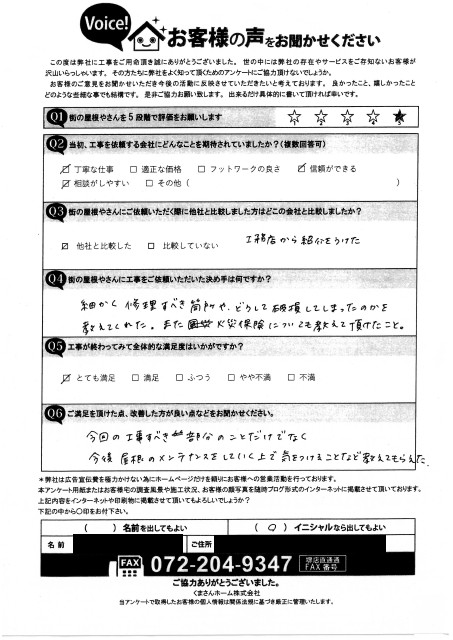 Voice!
お客様の声をお聞かせください
この度は弊社に工事をご用命頂き誠にありがとうございました。世の中には弊社の存在やサービスをご存知ないお客様が
沢山いらっしゃいます。その方たちに弊社をよく知って頂くためのアンケートにご協力頂けないでしょうか。
お客様のご意見をお聞かせいただき今後の活動に反映させていただきたいと考えております。良かったこと、嬉しかったこと
どのような些細な事でも結構です。是非ご協力お願い致します。出来るだけ具体的に書いて頂ければ幸いです。
Q1 街の屋根やさんを5段階で評価をお願いします ☆1 ☆2 ☆3 ☆4 ★5
Q2 当初、工事を依頼する会社にどんなことを期待されていましたか?(複数回答可)
☑ 丁寧な仕事 □ 適正な価格 □ フットワークの良さ ☑ 信頼ができる
☑ 相談がしやすい □ その他( )
Q3 街の屋根やさんにご依頼いただく際に他社と比較しました方はどこの会社と比較しましたか?
☑ 他社と比較した □ 比較していない 工務店から紹介をうけた
Q4 街の屋根やさんに工事をご依頼いただいた決め手は何ですか?
細かく修理すべき箇所や、どうして破損してしまったのかを
教えてくれた。また 火災保険についても教えて頂けたこと。
Q5 工事が終わってみて全体的な満足度はいかがですか?
☑ とても満足 □ 満足 □ ふつう □ やや不満 □ 不満
Q6 ご満足を頂けた点、改善した方が良い点などをお聞かせください。
今回の工事すべき部分のことだけでなく
今後屋根のメンテナンスをしていく上で気をつけることなど教えてもらえた。
*弊社は広告宣伝費を極力かけない為にホームページだけを頼りにお客様への営業活動を行っております。
本アンケート用紙またはお客様宅の調査風景や施工状況、お客様の顔写真を随時ブログ形式のインターネットに掲載させて頂いております。
上記内容をインターネットや印刷物に掲載させて頂いてもよろしいでしょうか?
下記の中から〇印をお付下さい。
( ) 名前を出してもよい ( ○ ) イニシャルなら出してもよい
名前 ご住所
FAX 072-204-9347 堺店直通 FAX番号
ご協力ありがとうございました。
くまさんホーム株式会社
当アンケートで取得したお客様の個人情報は関係法規に基づき厳正に管理いたします。